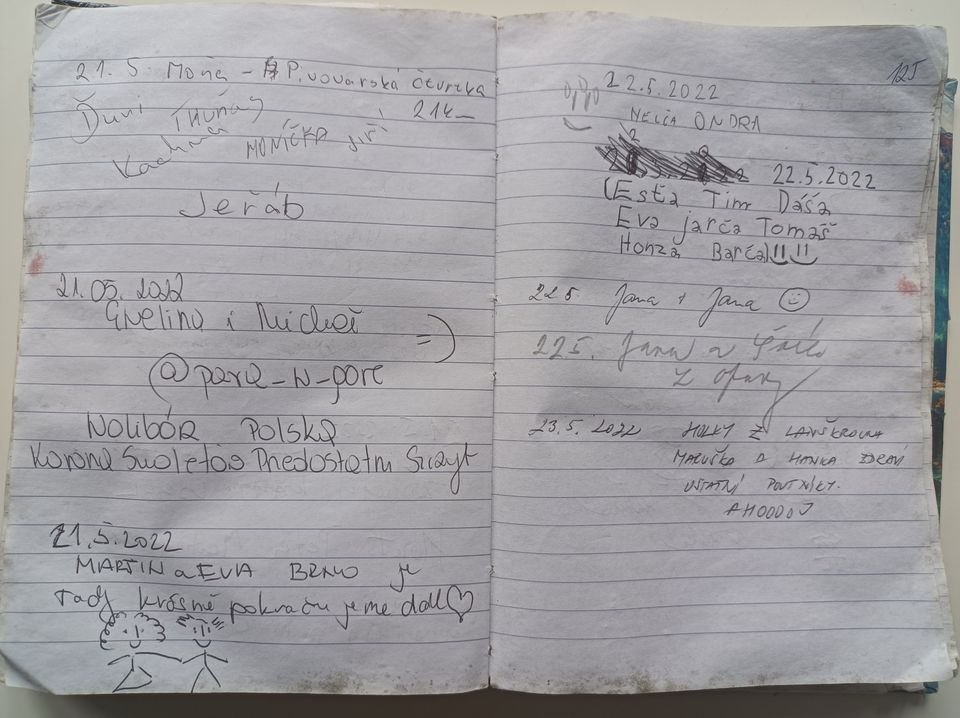 21. 5. Moňa - Pivovarská čtvrtka
21k
Ďuri
MONIČKA Jiří
Jeřáb
21.05.2022
Ewelina i Michał =)
@para_w_gore
Wolibórz Polska
Korona Sudetów Przedostatni Szczyt
21.5.2022
MARTIN a EVA BRNO je
tady krásně pokračujeme dál ♡
125
22.5.2022
NELČA ONDRA
22.5.2022
(Esťa Tim Dáša
Eva jarča Tomáš
Honza Barča)
22.5. Jana + Jana ☺
22.5. Jana a
z Opavy
23.5.2022 HOLKY Z LANŠKROUNA
MARUŠKA A HANKA ZDRAVÍ
OSTATNÍ POUTNÍKY.
AHOOOOJ